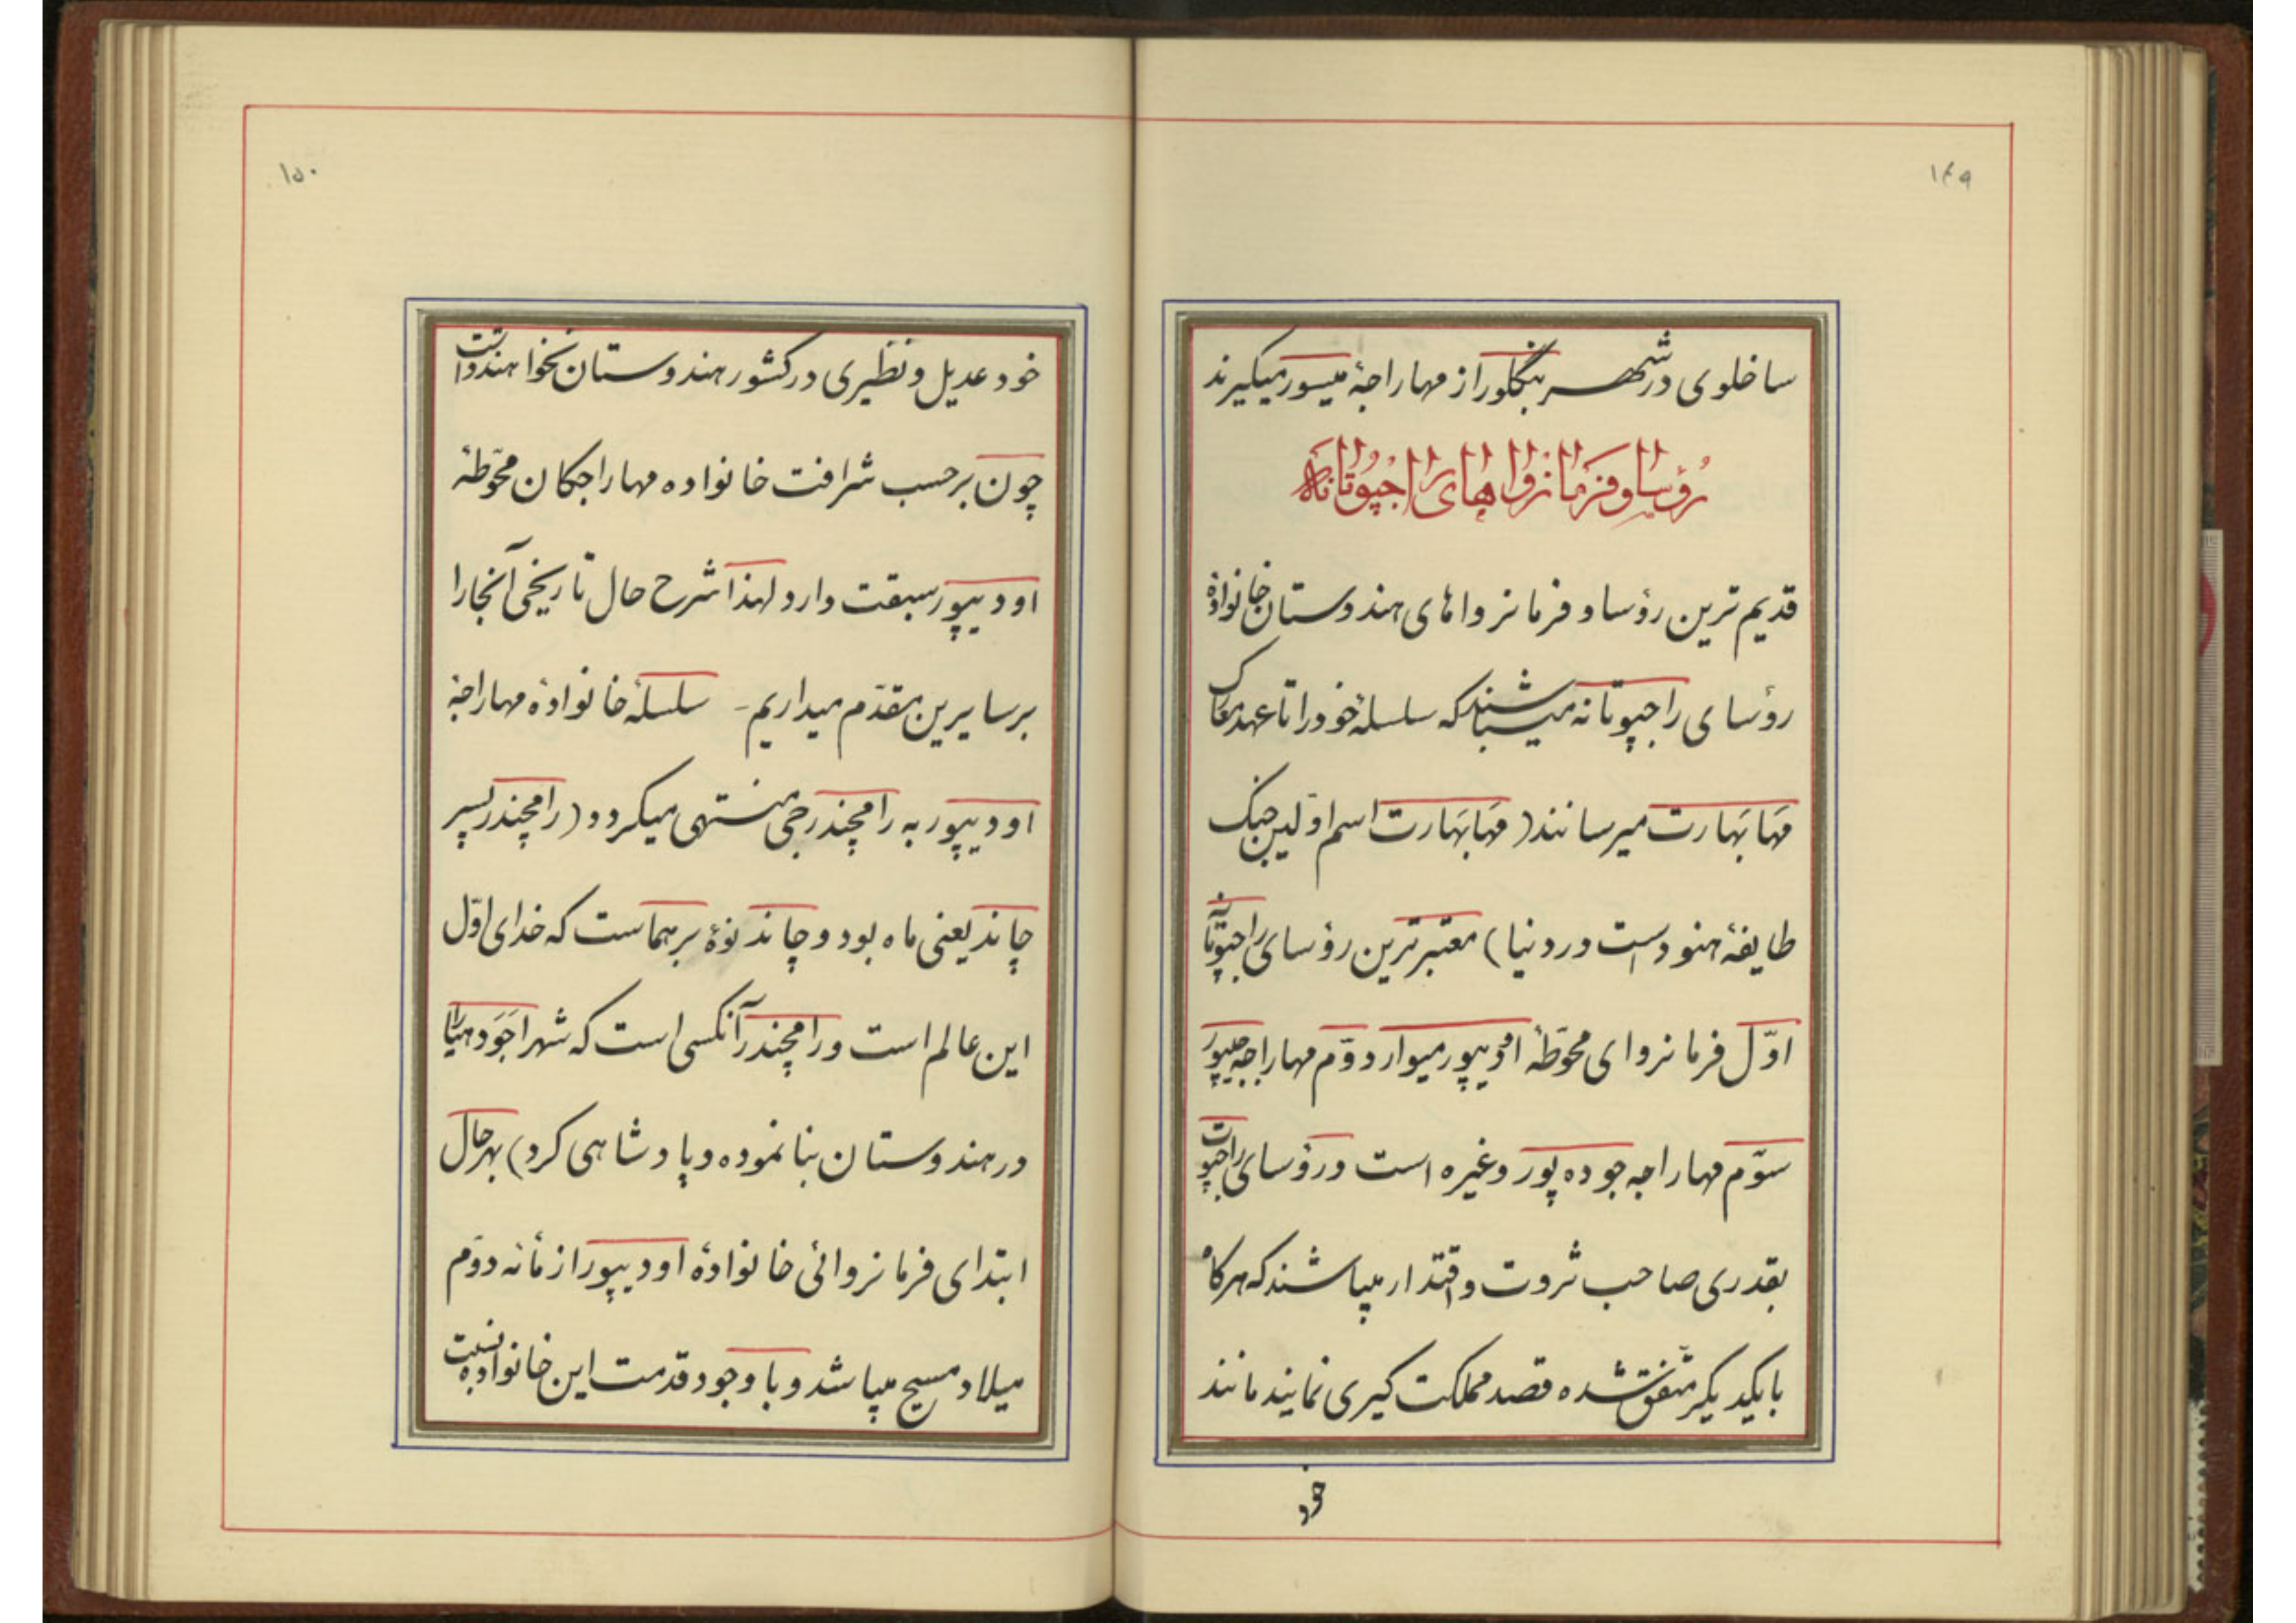 ۱۴۹
ساخلوی در شهر بنگلور از مهاراجهٔ میسور میگیرند
رؤسا و فرمانروا های راجپوتانه
قدیم ترین رؤسا و فرمانروا های هندوستان خانوادهٔ
رؤسای راجپوتانه میباشند که سلسلهٔ خود را تا عهد معارک
مَهابَهارت میرسانند (مَهابَهارت اسم اوّلین جنگ
طایفهٔ هنود است در دنیا) معتبر ترین رؤسای راجپوتانه
اوّل فرمانروای محوّطهٔ اودیپور میوار دوّم مهاراجه جیپور
سوّم مهاراجه جوده پور وغیره است و رؤسای راجپوت
بقدری صاحب ثروت و اقتدار میباشند که هرگاه
با یکدیگر متّفق شده قصد مملکت گیری نمایند مانند
خود
۱۵۰
خود عدیل و نظیری در کشور هندوستان نخواهند داشت
چون بر حسب شرافت خانواده مهاراجگان محوّطهٔ
اودیپور سبقت دارد لهذا شرح حال تاریخی آنجا را
بر سایرین مقدّم میداریم - سلسلهٔ خانوادهٔ مهاراجهٔ
اودیپور به رامچندرجی منتهی میگردد (رامچندر پسر
چاند یعنی ماه بود و چاند نوهٔ برهماست که خدای اوّل
این عالم است و رامچندر آنکسی است که شهر اجَودهیا را
در هندوستان بنا نموده و پادشاهی کرد) بهر حال
ابتدای فرمانروائی خانوادهٔ اودیپور از مأنه دوّم
میلاد مسیح میباشد و با وجود قدمت این خانواده نسبت